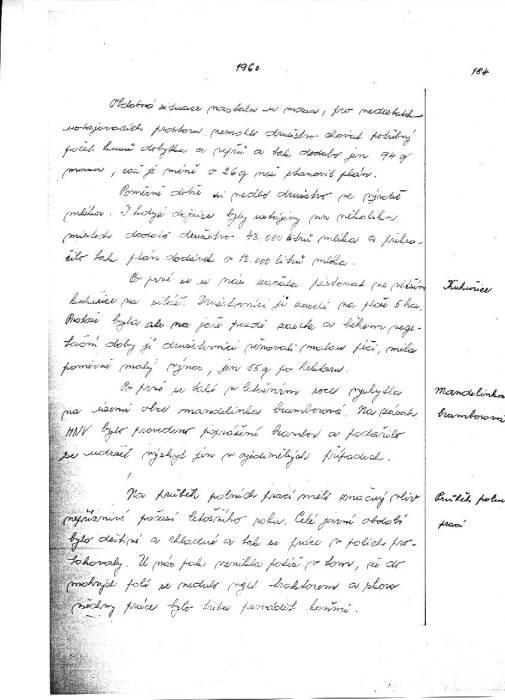 1960
184
Obdobná situace nastala u masa, pro nedostatek
ustajovacích prostorů nemohlo družstvo chovat potřebný
počet kusů dobytka a vepřů a tak dodalo jen 94 q
masa, což je méně o 26 q než stanovil plán.
Poměrně dobře si vedlo družstvo ve výrobě
mléka. I když dojnice byly ustájeny na několika
místech dodalo družstvo 43.000 litrů mléka a překro-
čilo tak plán dodávek o 13.000 litrů mléka.
Po prvé se u nás začala pěstovat ve větším
kukuřice na siláž. Družstevníci ji zaseli na ploše 5 ha.
Kukuřice
Protože byla ale na jaře pozdě zaseta a během vege-
tační doby jí družstevníci věnovali malou péči, měla
poměrně malý výnos, jen 55 q po hektaru.
Po prvé se také v letošním roce vyskytla
Mandelinka
na území obce mandelinka bramborová. Na zásah
bramborová
MNV bylo provedeno poprášení brambor a podařilo
se udržet výskyt jen v ojedinělých případech.
Na průběh polních prací mělo značný vliv
Průběh poln.
nepříznivé počasí letošního roku. Celé jarní období
prací
bylo deštivé a chladné a tak se práce v polích pro-
tahovaly. U nás pak vznikla potíž v tom, že do
mokrých polí se nedalo vyjet traktorem a skoro
všechny práce bylo třeba provádět koňmi.